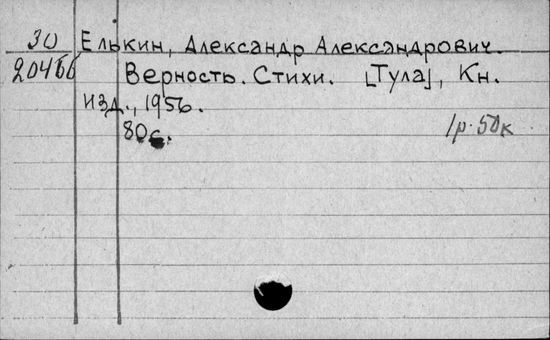 30 Елькин, Александр Александрович.
20466 Верность. Стихи. [Тула], Кн.
изд., 1956.
80 с. 1р. 50к